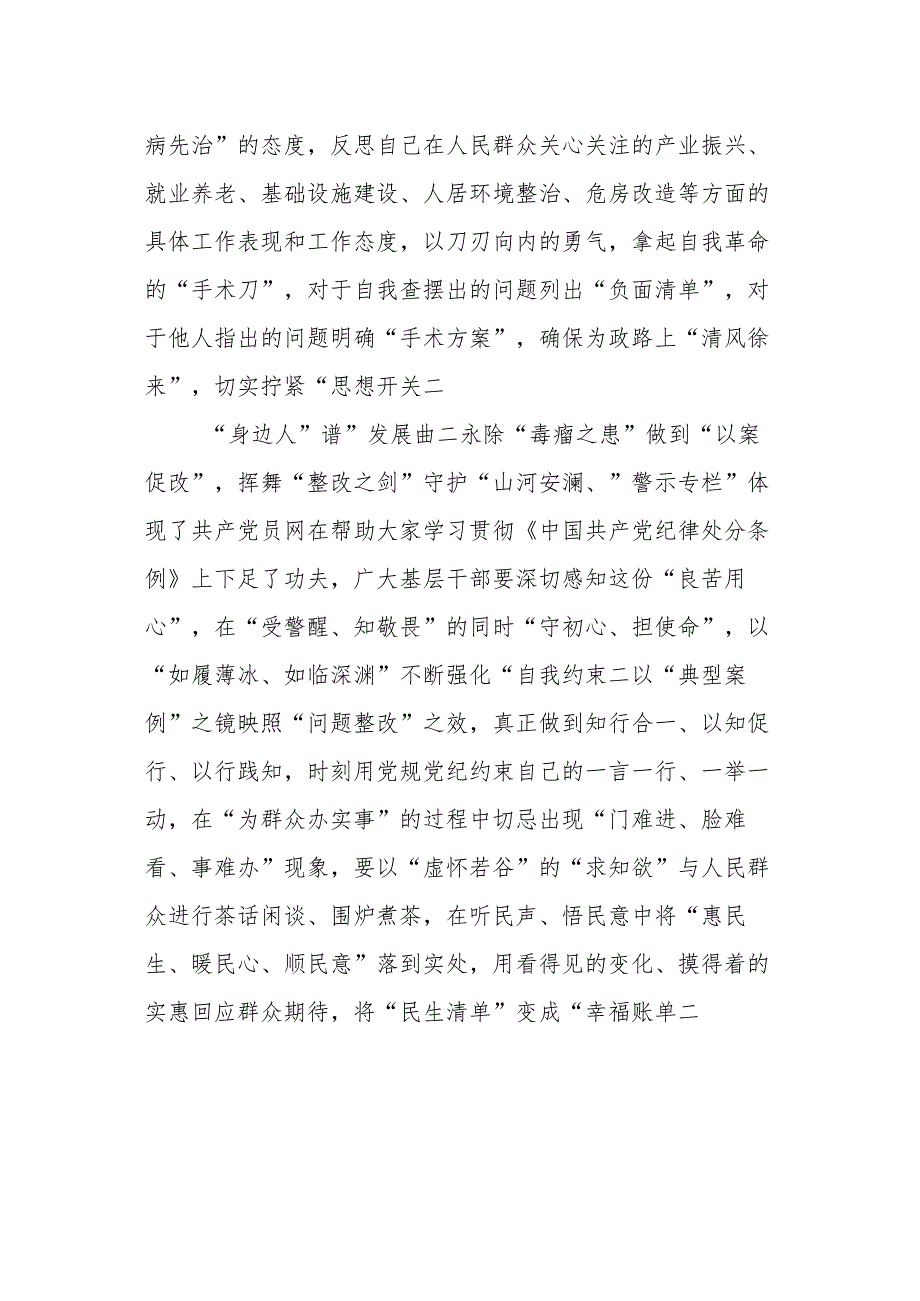 病先治”的态度，反思自己在人民群众关心关注的产业振兴、
就业养老、基础设施建设、人居环境整治、危房改造等方面的
具体工作表现和工作态度，以刀刃向内的勇气，拿起自我革命
的“手术刀”，对于自我查摆出的问题列出“负面清单”，对
于他人指出的问题明确“手术方案”，确保为政路上“清风徐
来”，切实拧紧“思想开关二
“身边人”谱”发展曲二永除“毒瘤之患”做到“以案
促改”，挥舞“整改之剑”守护“山河安澜、”警示专栏”体
现了共产党员网在帮助大家学习贯彻《中国共产党纪律处分条
例》上下足了功夫，广大基层干部要深切感知这份“良苦用
心”，在“受警醒、知敬畏”的同时“守初心、担使命”，以
“如履薄冰、如临深渊”不断强化“自我约束二以“典型案
例”之镜映照“问题整改”之效，真正做到知行合一、以知促
行、以行践知，时刻用党规党纪约束自己的一言一行、一举一
动，在“为群众办实事”的过程中切忌出现“门难进、脸难
看、事难办”现象，要以“虚怀若谷”的“求知欲”与人民群
众进行茶话闲谈、围炉煮茶，在听民声、悟民意中将“惠民
生、暖民心、顺民意”落到实处，用看得见的变化、摸得着的
实惠回应群众期待，将“民生清单”变成“幸福账单二